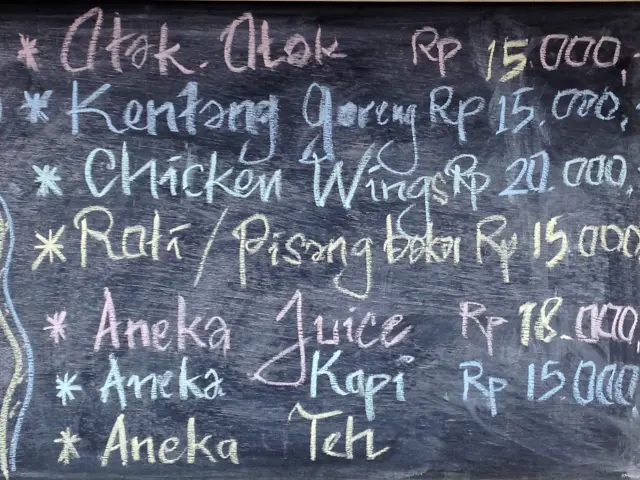 * Otak. Otak Rp 15.000,-
* Kentang goreng Rp 15.000,-
* Chicken Wings Rp 20.000,-
* Roti / Pisang bakar Rp 15.000
* Aneka Juice Rp 18.000,
* Aneka Kopi Rp 15.000
* Aneka Teh